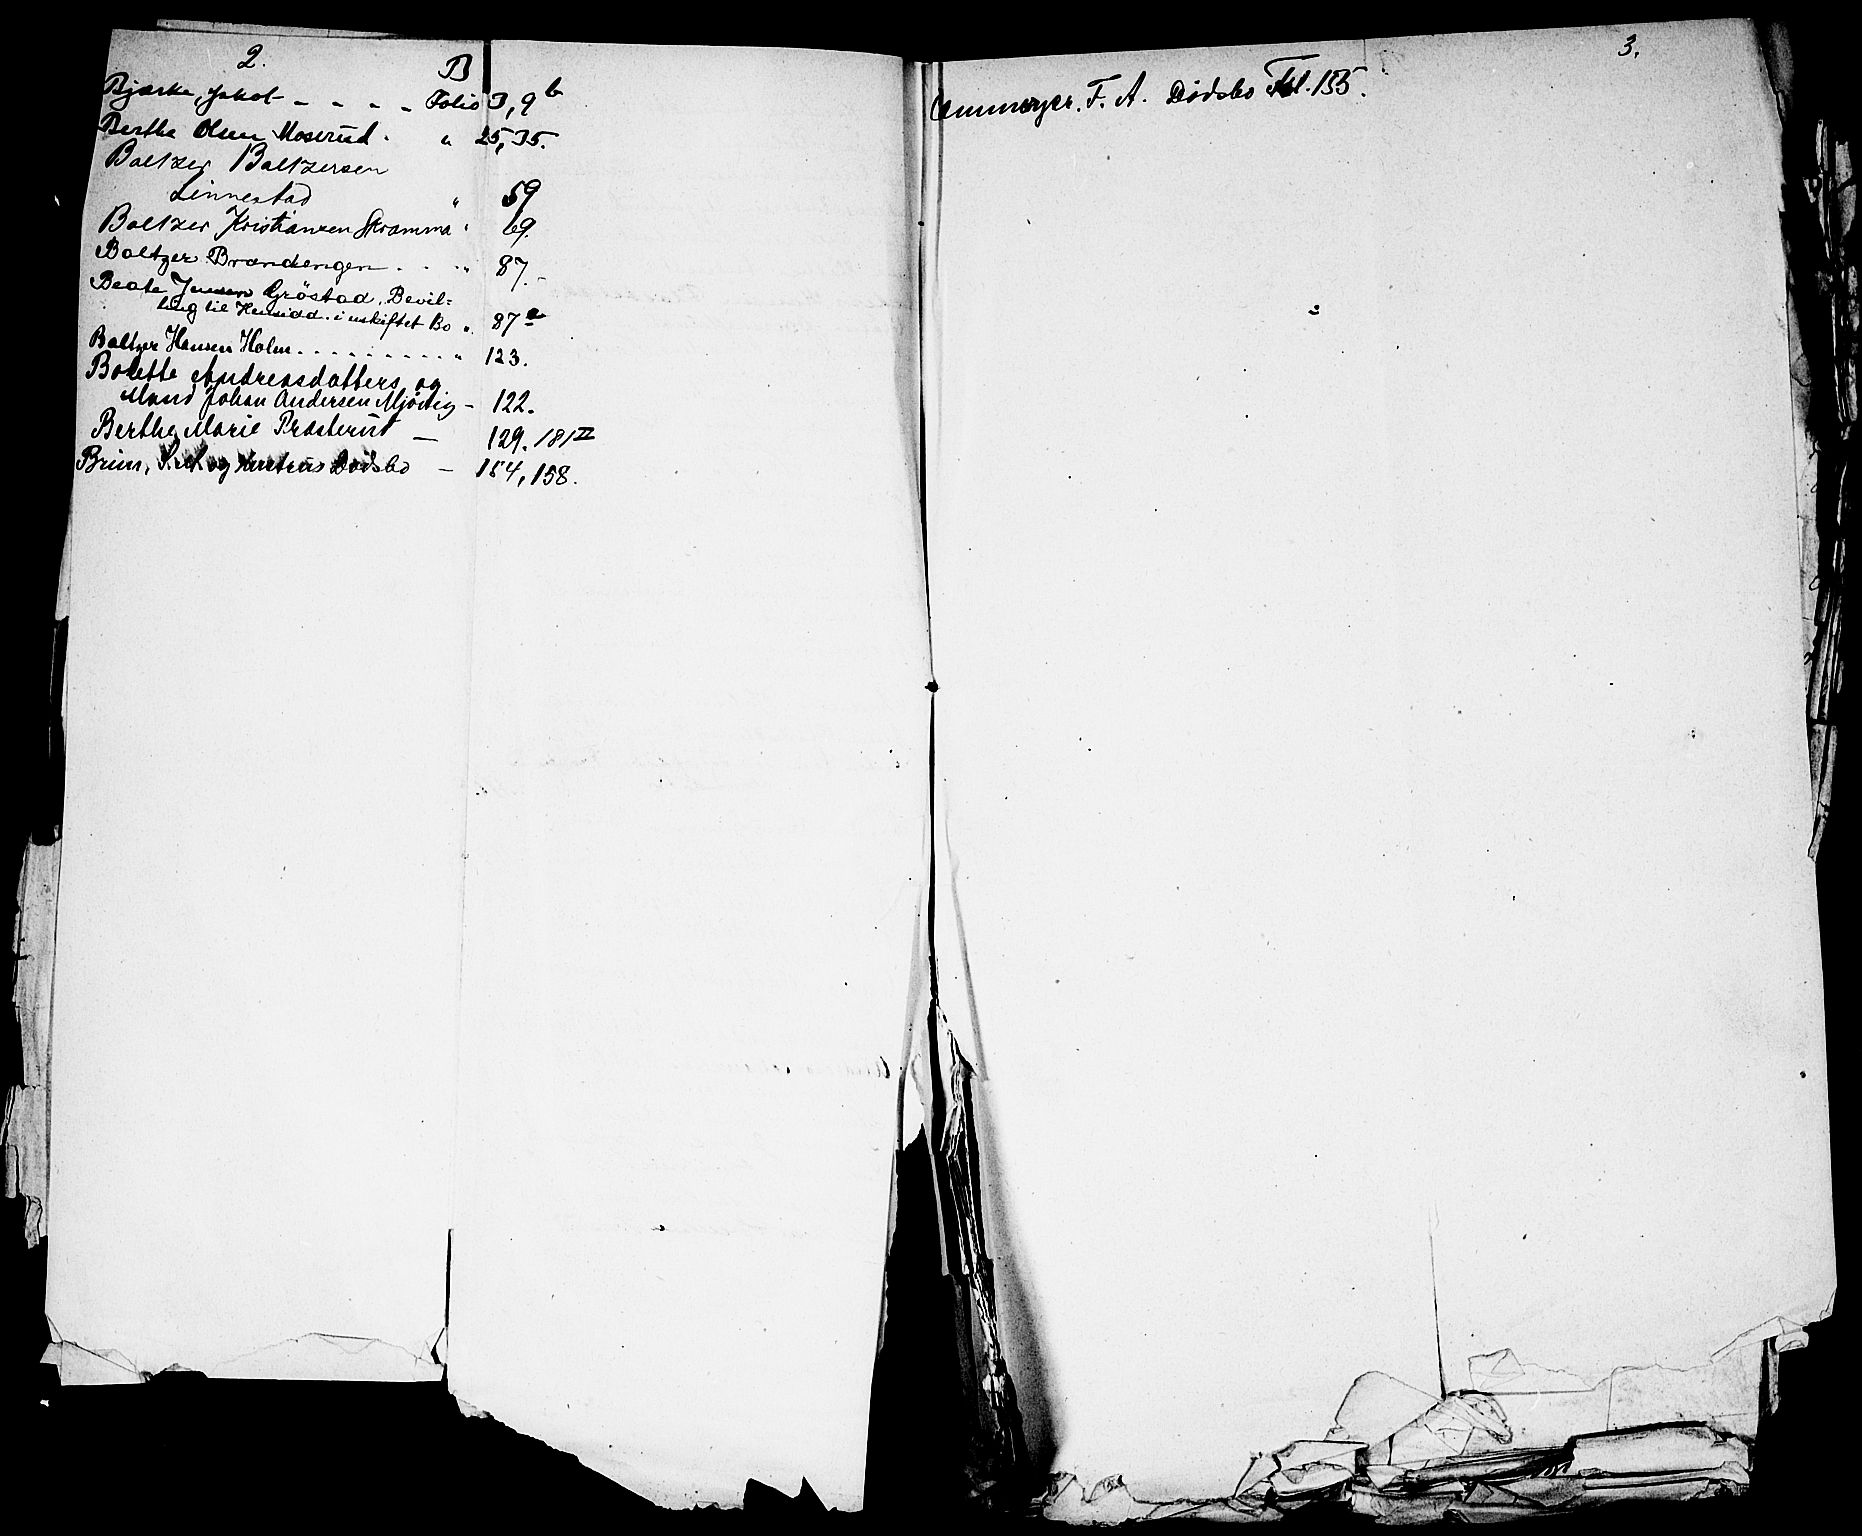 2.
B
Bjærke, Jakob - - - - Folio 3, 9 b
Berthe Olsen Moserud. " 25, 35.
Baltzer Baltzersen
Linnestad " 59
Baltzer Kristianzen Skramma " 69.
Baltzer Brandengen . . . " 87.
Beate Jensen Gröstad, Bevil=
ling til Hensidd. i uskiftet Bo " 87 a
Baltzer Hansen Holm . . . . . . . . . . " 123.
Bolette Andreasdatters og
Mand Johan Andersen Mjödig - 122.
Berthe Marie Præsterud - 129. 181 II
Brun, og Hustrus Dødsbo - 154, 158.
3.
F. A. Dödsbo Fol. 155.